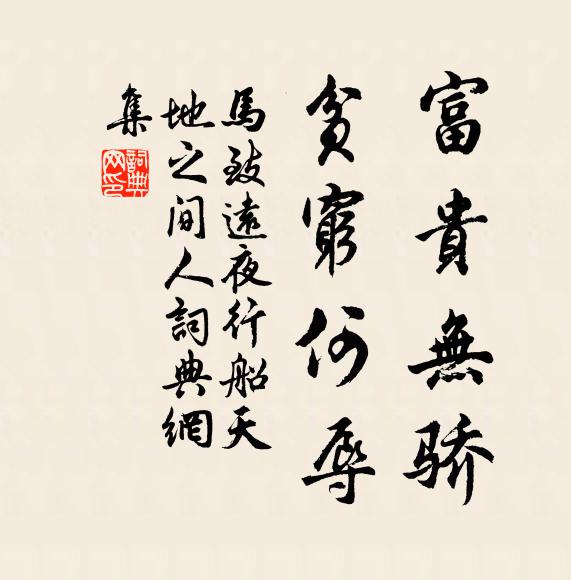 富貴無骄
貧窮何辱
馬致遠夜行船天
地之间人詞典網
集
詞典网印